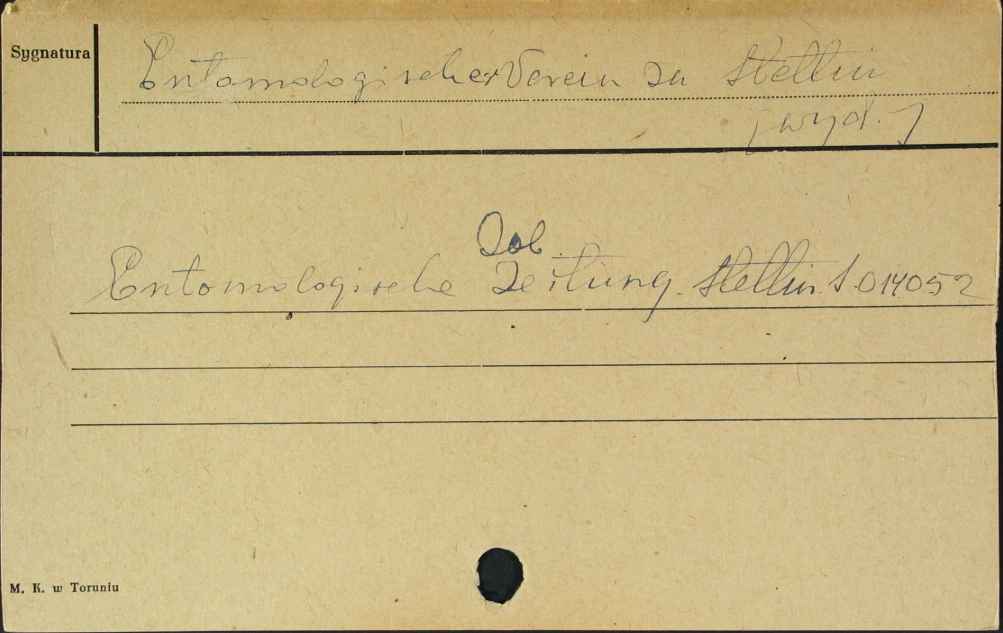 Sygnatura
Entomologischer Verein zu Stettin
[wyd.]
Zob.
Entomologische Zeitung. Stettin. S.014052
M. K. w Toruniu